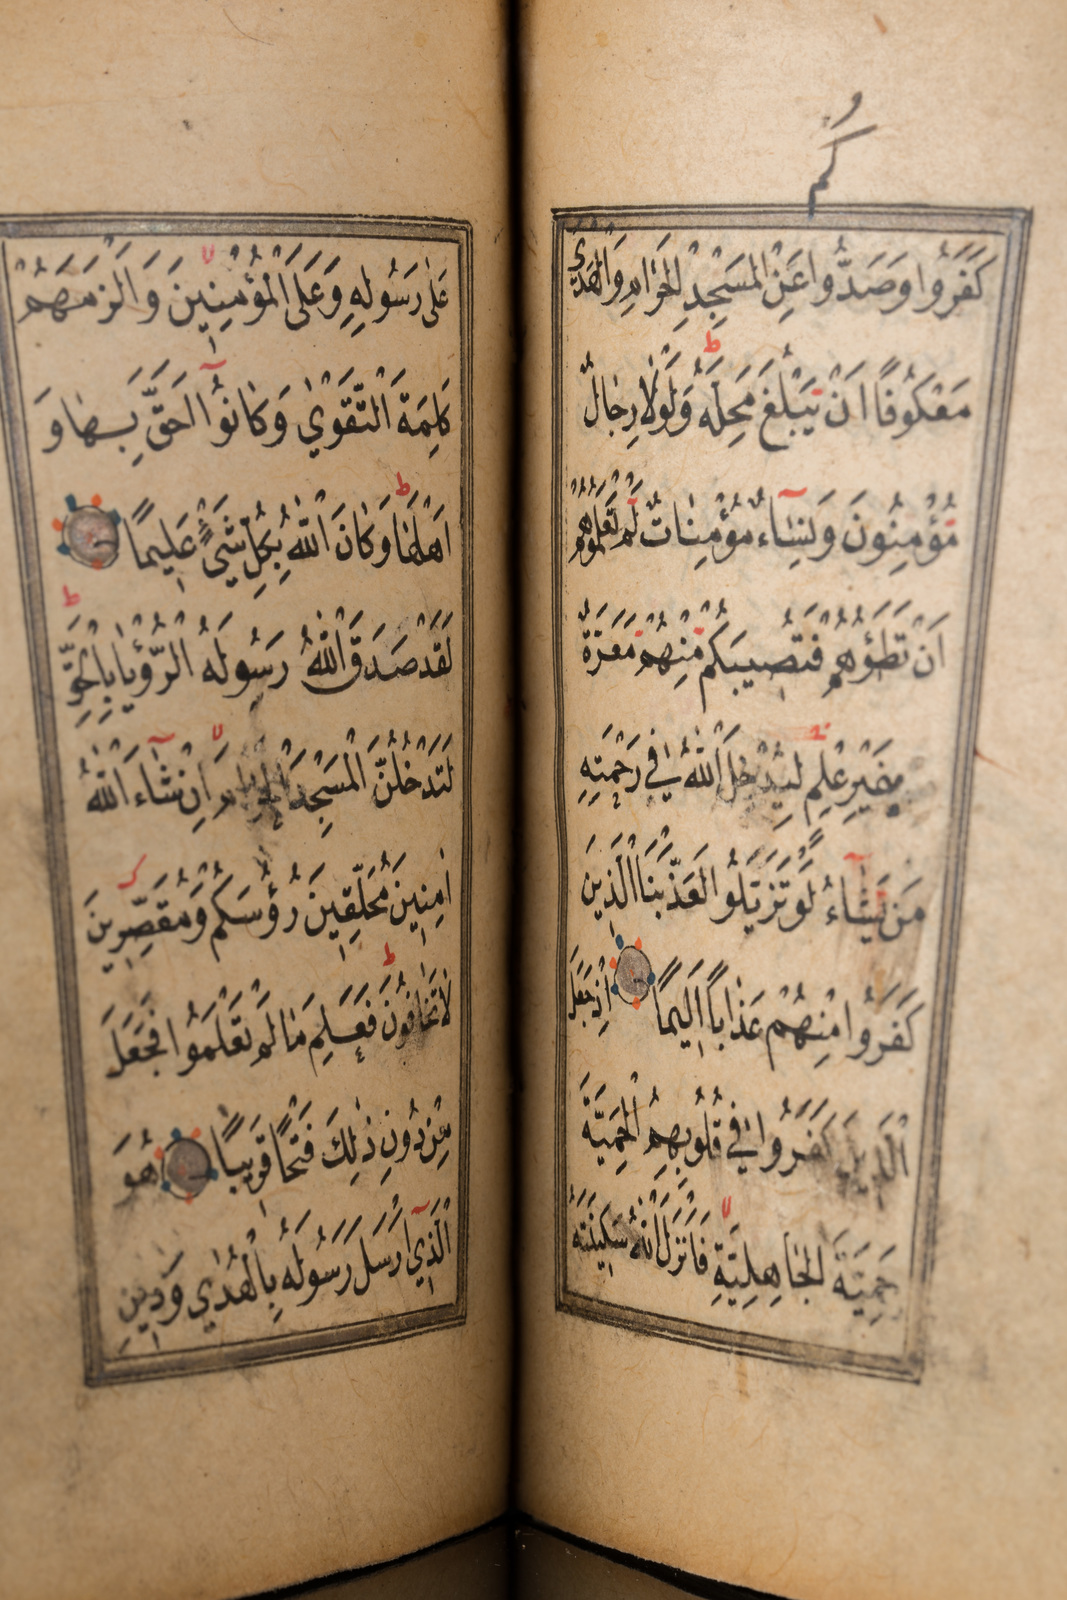 كُمْ
كَفَرُوا وَصَدُّوا عَنِ الْمَسْجِدِ الْحَرَامِ وَالْهَدْيَ
مَعْكُوفًا اَنْ يَبْلُغَ مَحِلَّهُ وَلَوْلَا رِجَالٌ
مُؤْمِنُونَ وَنِسَاءٌ مُؤْمِنَاتٌ لَمْ تَعْلَمُوهُمْ
اَنْ تَطَؤُهُمْ فَتُصِيبَكُمْ مِنْهُمْ مَعَرَّةٌ
بِغَيْرِ عِلْمٍ لِيُدْخِلَ اللّٰهُ فِي رَحْمَتِهِ
مَنْ يَشَاءُ لَوْ تَزَيَّلُوا لَعَذَّبْنَا الَّذِينَ
كَفَرُوا مِنْهُمْ عَذَابًا اَلِيمًا اِذْ جَعَلَ
الَّذِينَ كَفَرُوا فِي قُلُوبِهِمُ الْحَمِيَّةَ
حَمِيَّةَ الْجَاهِلِيَّةِ فَاَنْزَلَ اللّٰهُ سَكِينَتَهُ
عَلٰى رَسُولِهِ وَعَلَى الْمُؤْمِنِينَ وَاَلْزَمَهُمْ
كَلِمَةَ التَّقْوٰى وَكَانُوا اَحَقَّ بِهَا وَ
اَهْلَهَا وَكَانَ اللّٰهُ بِكُلِّ شَيْءٍ عَلِيمًا
لَقَدْ صَدَقَ اللّٰهُ رَسُولَهُ الرُّؤْيَا بِالْحَقِّ
لَتَدْخُلُنَّ الْمَسْجِدَ الْحَرَامَ اِنْ شَاءَ اللّٰهُ
اٰمِنِينَ مُحَلِّقِينَ رُؤُسَكُمْ وَمُقَصِّرِينَ
لَا تَخَافُونَ فَعَلِمَ مَا لَمْ تَعْلَمُوا فَجَعَلَ
مِنْ دُونِ ذٰلِكَ فَتْحًا قَرِيبًا هُوَ
الَّذِي اَرْسَلَ رَسُولَهُ بِالْهُدٰى وَدِينِ